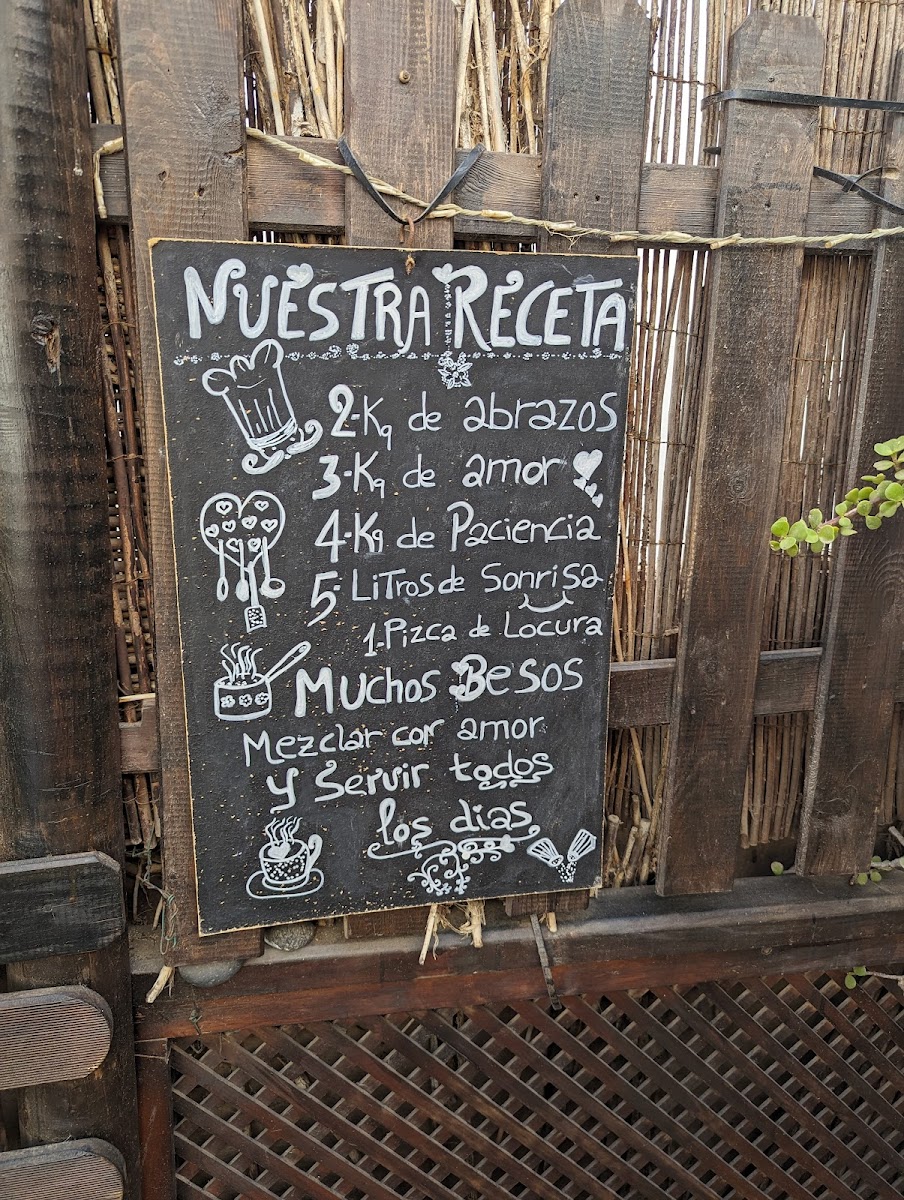 NUESTRA RECETA
2-Kg de abrazos
3-Kg de amor
4-Kg de Paciencia
5- LiTros de Sonrisa
1-Pizca de Locura
Muchos Besos
Mezclar con amor
y Servir todos
los dias